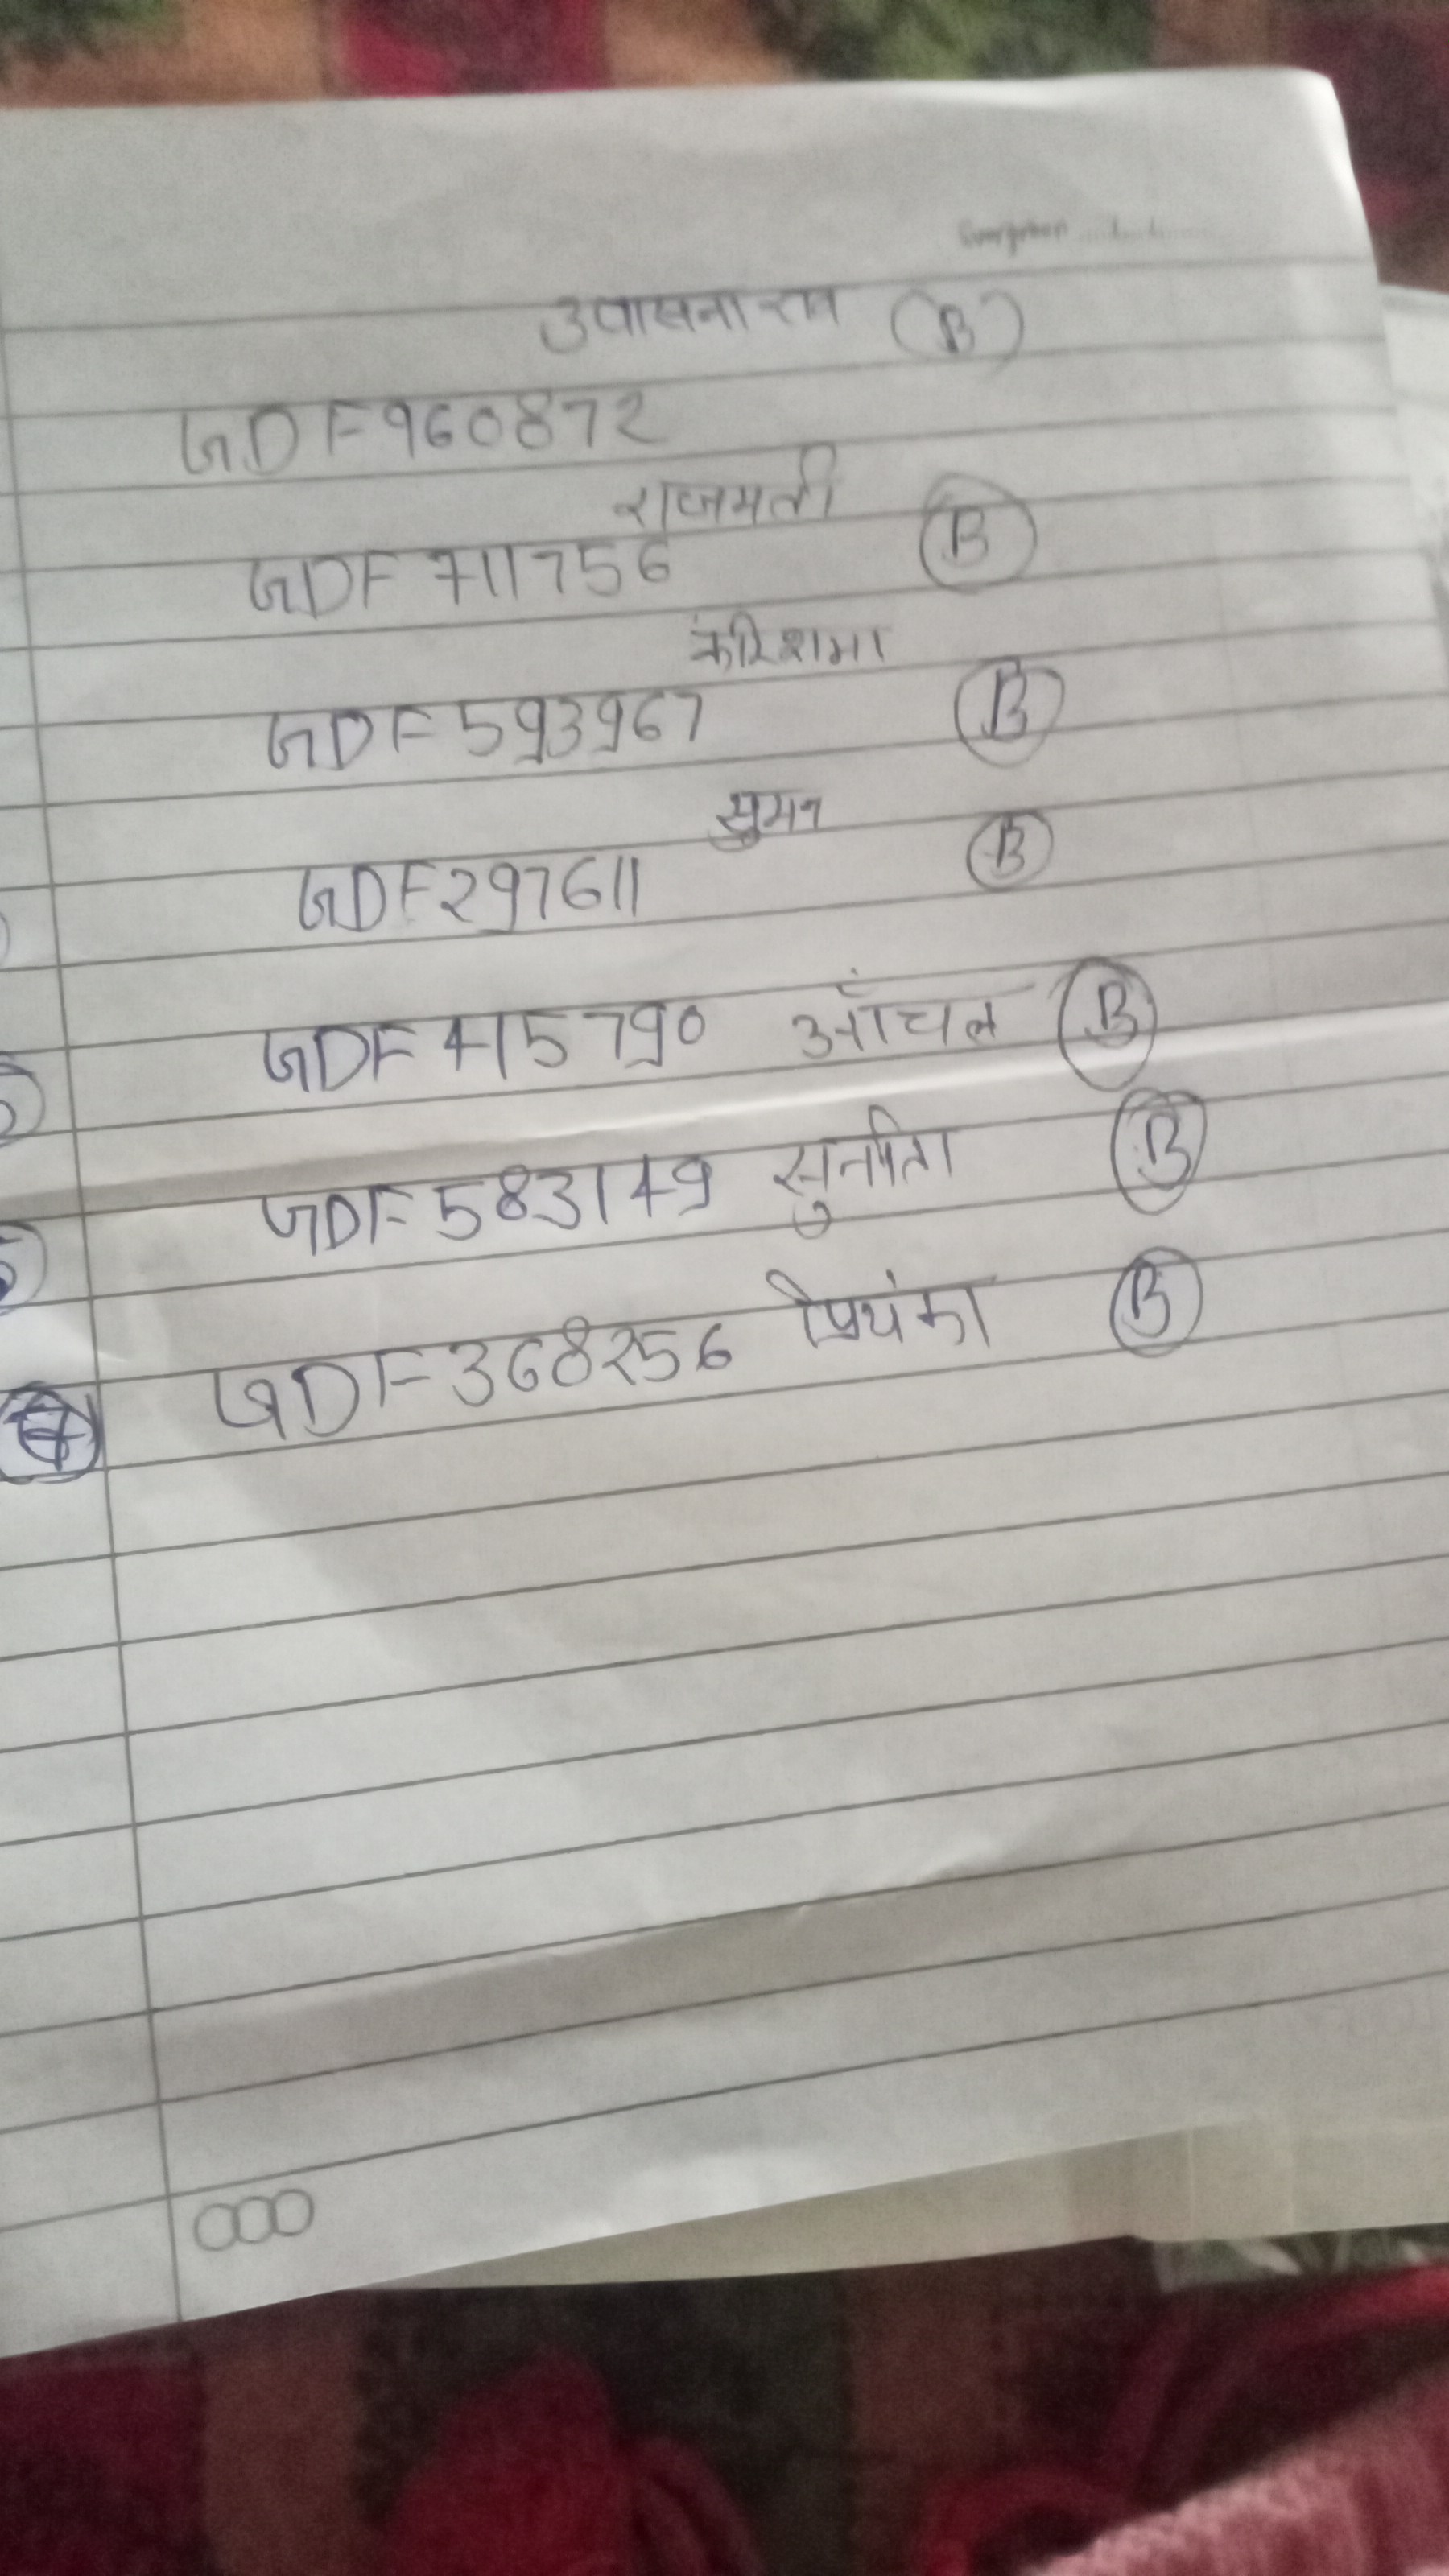 उपासना राव (B)
GDF960872
राजमती
GDF 711756 B
करिशमा
GDF 593967 B
सुमन
GDF297611 B
GDF 415790 आँचल B
GDF 583149 सुनीता B
GDF 368256 प्रियंका B
7